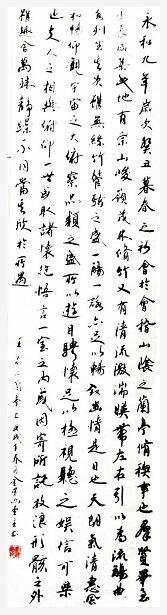 永和九年歲次癸丑暮春之初會於會稽山陰之蘭亭脩禊事也群賢畢至
少長咸集此地有崇山峻領茂林脩竹又有清流激湍暎帶左右引以為流觴曲
水列坐其次雖無絲竹管弦之盛一觴一詠亦足以暢敘幽情是日也天朗氣清惠風
和暢仰觀宇宙之大俯察品類之盛所以遊目騁懷足以極視聽之娛信可樂
也夫人之相與俯仰一世或取諸懷抱悟言一室之內或因寄所託放浪形骸之外
雖趣舍萬殊靜躁不同當其欣於所遇
王羲之蘭亭序